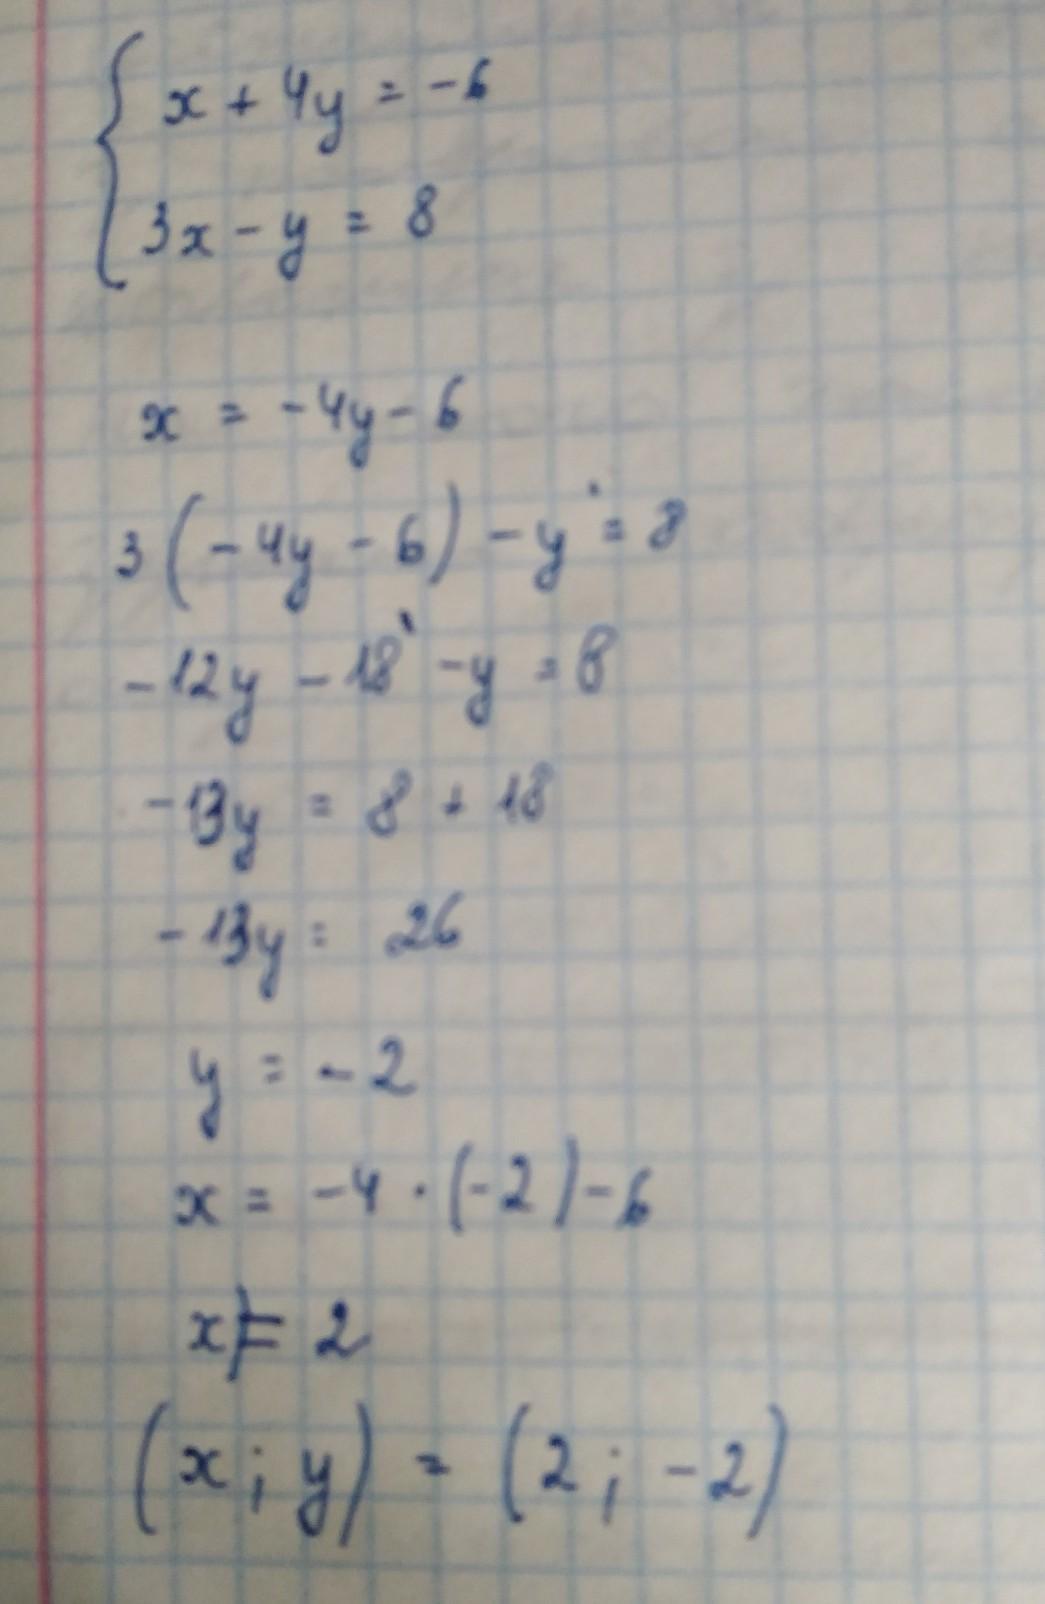 x + 4y = -6
3x - y = 8
x = -4y - 6
3(-4y - 6) - y = 8
-12y - 18 - y = 8
-13y = 8 + 18
-13y = 26
y = -2
x = -4 · (-2) - 6
x = 2
(x; y) = (2; -2)